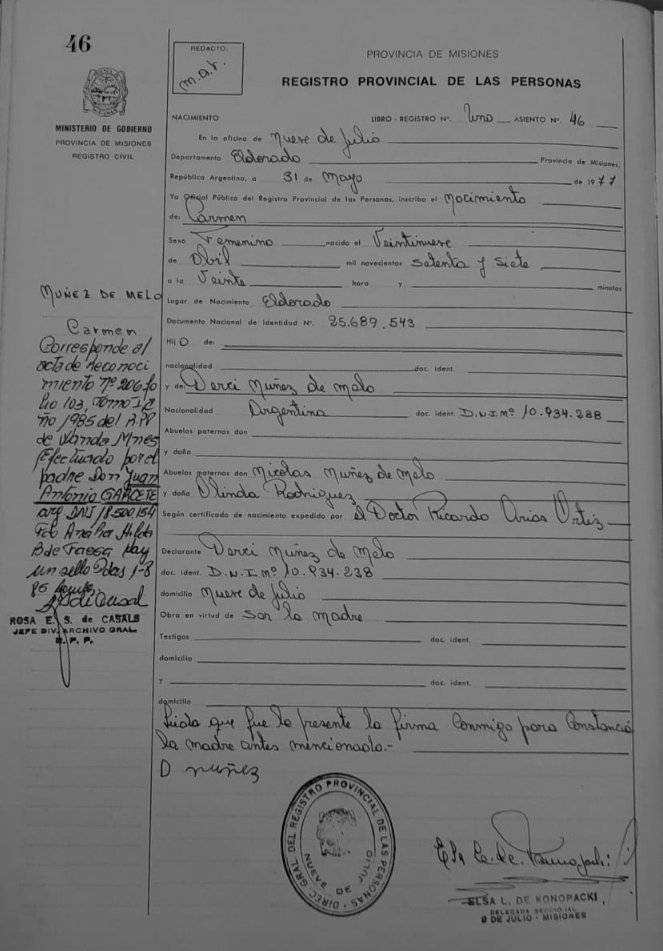 46
REDACTO:
m.a.r.
MINISTERIO DE GOBIERNO
PROVINCIA DE MISIONES
REGISTRO CIVIL
PROVINCIA DE MISIONES
REGISTRO PROVINCIAL DE LAS PERSONAS
NACIMIENTO LIBRO - REGISTRO Nº. Uno ASIENTO Nº. 46
En la oficina de Nueve de Julio
Departamento Eldorado Provincia de Misiones,
República Argentina, a 31 de Mayo de 1977
Yo Oficial Público del Registro Provincial de las Personas, inscribo el Nacimiento
de: Carmen
Sexo Femenino nacido el Veintinueve
de Abril mil novecientos setenta y siete
a la Veinte hora y minutos
Lugar de Nacimiento Eldorado
Documento Nacional de Identidad Nº. 25.689.543
Hij O de:
nacionalidad doc. ident.
y de Derci Nuñez de Melo
Nacionalidad Argentina doc. ident. D.N.I.Nº 10.934.238
Abuelos paternos don
y doña
Abuelos maternos don Nicolas Nuñez de Melo
y doña Olinda Rodriguez
Según certificado de nacimiento expedido por el Doctor Ricardo Arias Ortiz
Declarante Derci Nuñez de Melo
doc. ident. D.N.I.Nº 10.934.238
domicilio Nueve de Julio
Obra en virtud de Ser la madre
Testigos doc. ident.
domicilio
y doc. ident.
domicilio
Leida que fue la presente la firma Conmigo para Constancia
la madre antes mencionada.-
D Nuñez
NUÑEZ DE MELO
Carmen
Corresponde al
acta de reconoci
miento Nº 206 fo
lio 103, Tomo I
ño 1985 del
de Wanda Mnes
Efectuado por el
padre Don Juan
Antonio GARCETE
arg DNI 18.500.154
Hilda
B de Fassa Hay
un sello Pdas 1-8
85
ROSA E. S. de CASALS
JEFE DIV. ARCHIVO GRAL.
R. P. P.
DIREC GRAL DEL REGISTRO PROVINCIAL DE LAS PERSONAS
NUEVE DE JULIO
ELSA L. DE KONOPACKI
DELEGADA SECCIONAL
9 DE JULIO - MISIONES